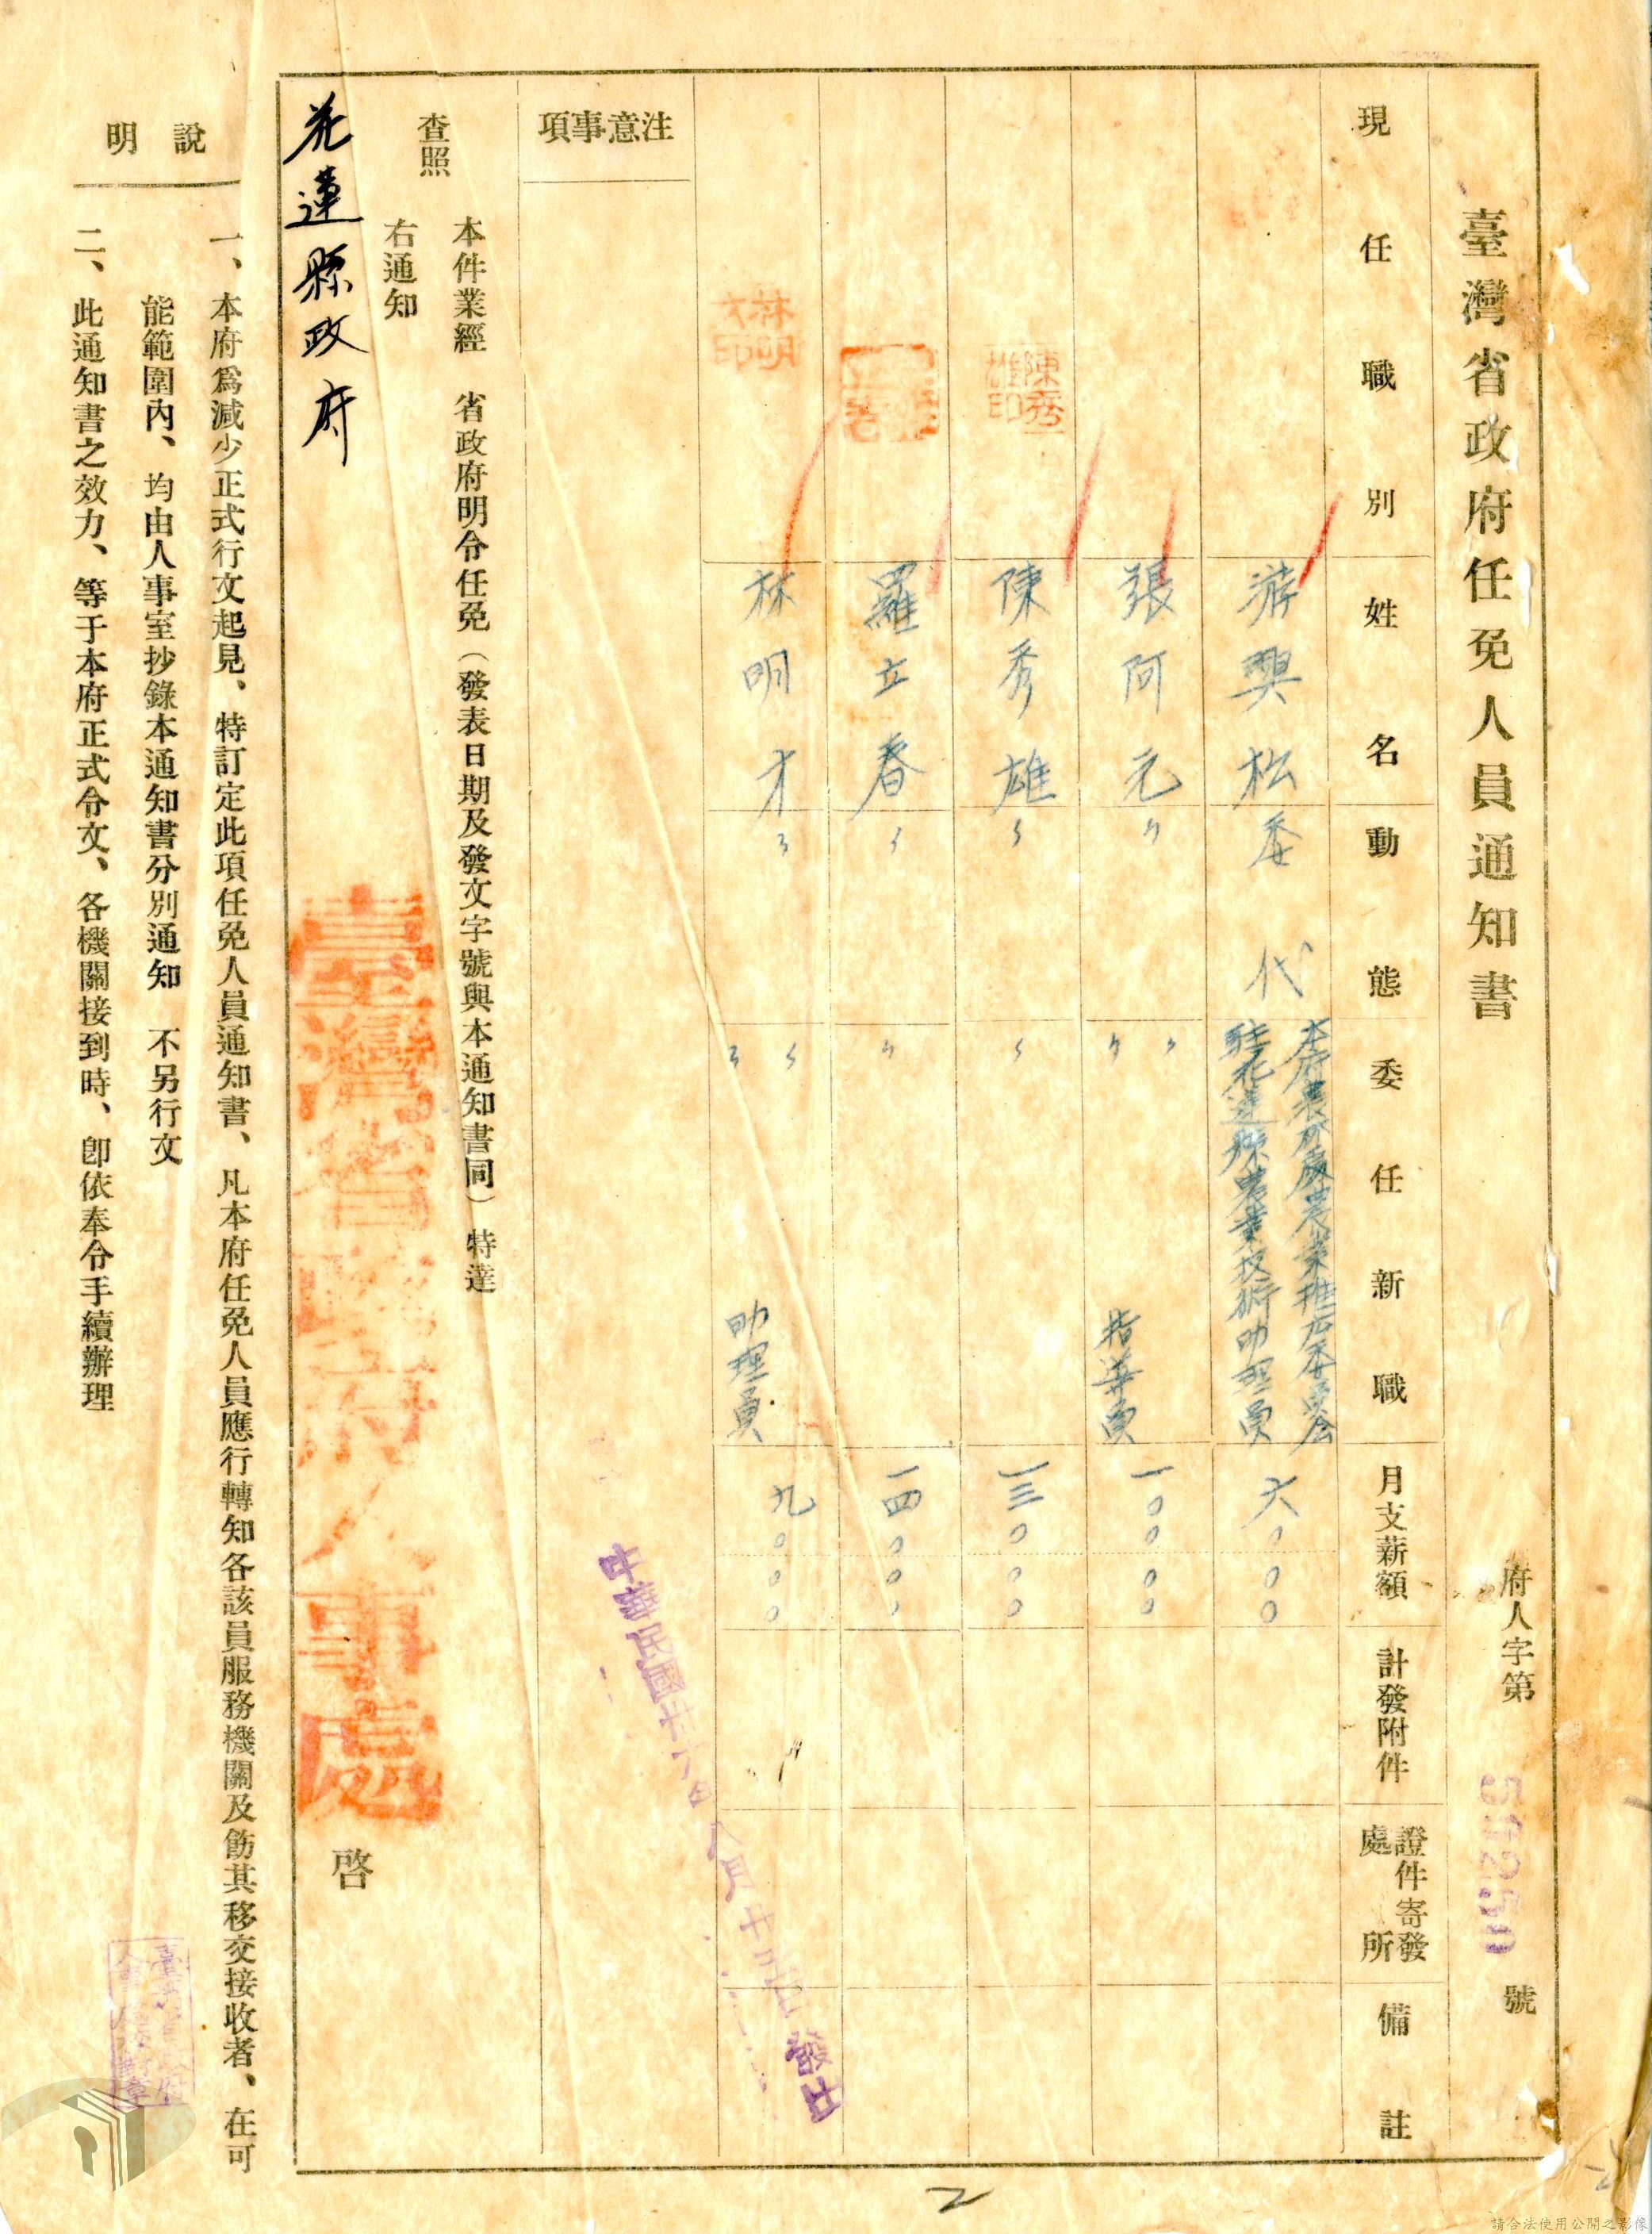 臺灣省政府任免人員通知書
府人字第 51250 號
現任職別 姓名 動態 委任新職 月支薪額 計發附件 證件寄發處所 備註
游興松 委代 本府農林處農業推広委員会
駐花蓮縣農業技術助理員 六〇〇〇
張阿元 〃 〃 〃 指導員 一〇〇〇〇
陳秀雄 〃 〃 一三〇〇〇
羅立春 〃 〃 一四〇〇〇
林明才 〃 〃 〃 助理員 九〇〇〇
陳秀雄印
林明才印
注意事項
中華民國卅六年八月廿三日發出
本件業經 省政府明令任免（發表日期及發文字號與本通知書同）特達
查照
右通知
花蓮縣政府
臺灣省政府人事處 啓
說明
一、本府爲減少正式行文起見、特訂定此項任免人員通知書、凡本府任免人員應行轉知各該員服務機關及飭其移交接收者、在可
能範圍内、均由人事室抄錄本通知書分別通知 不另行文
二、此通知書之效力、等于本府正式令文、各機關接到時、卽依奉令手續辦理
2
請合法使用公開之影像